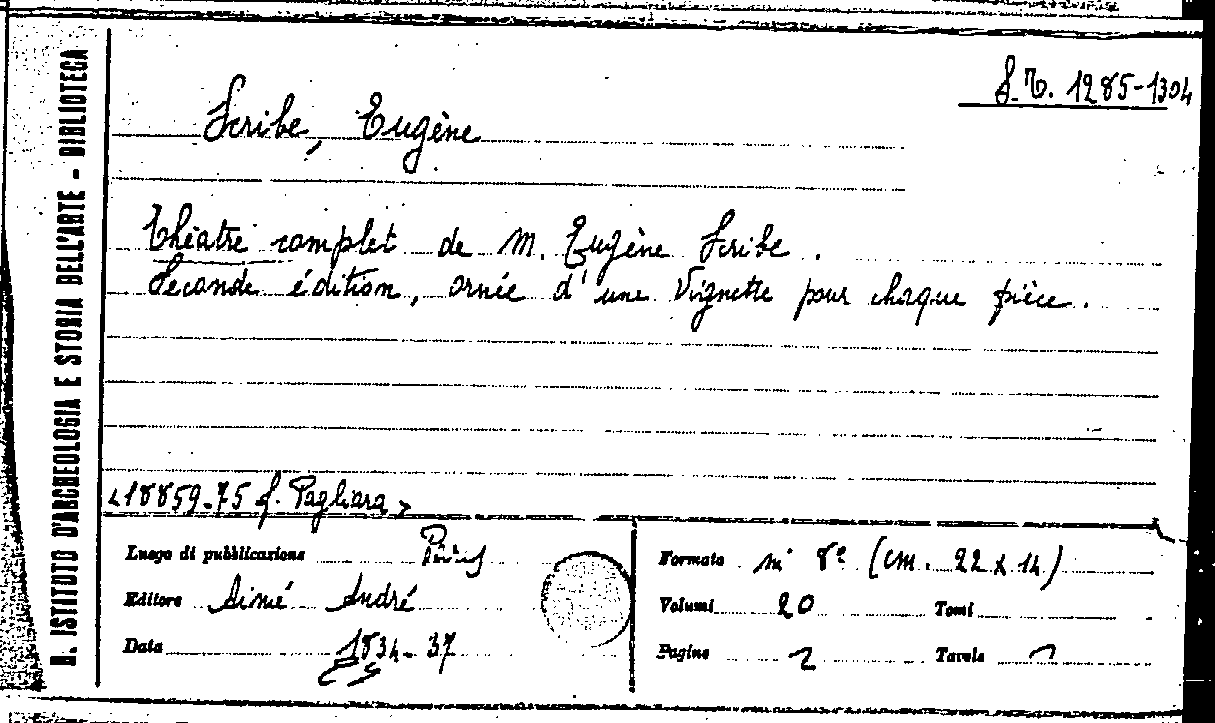 R. ISTITUTO D'ARCHEOLOGIA E STORIA DELL'ARTE - BIBLIOTECA
S.T. 1285-1304
Scribe, Eugène
Théatre complet de M. Eugène Scribe.
Seconde édition, ornée d'une vignette pour chaque pièce.
<18859-75 f. Pagliara>
Luogo di pubblicazione Paris
Formato in 8º (cm. 22 x 14)
Editore Aimé André
Volumi 20 Tomi
Data 1834-37
Pagine Tavole